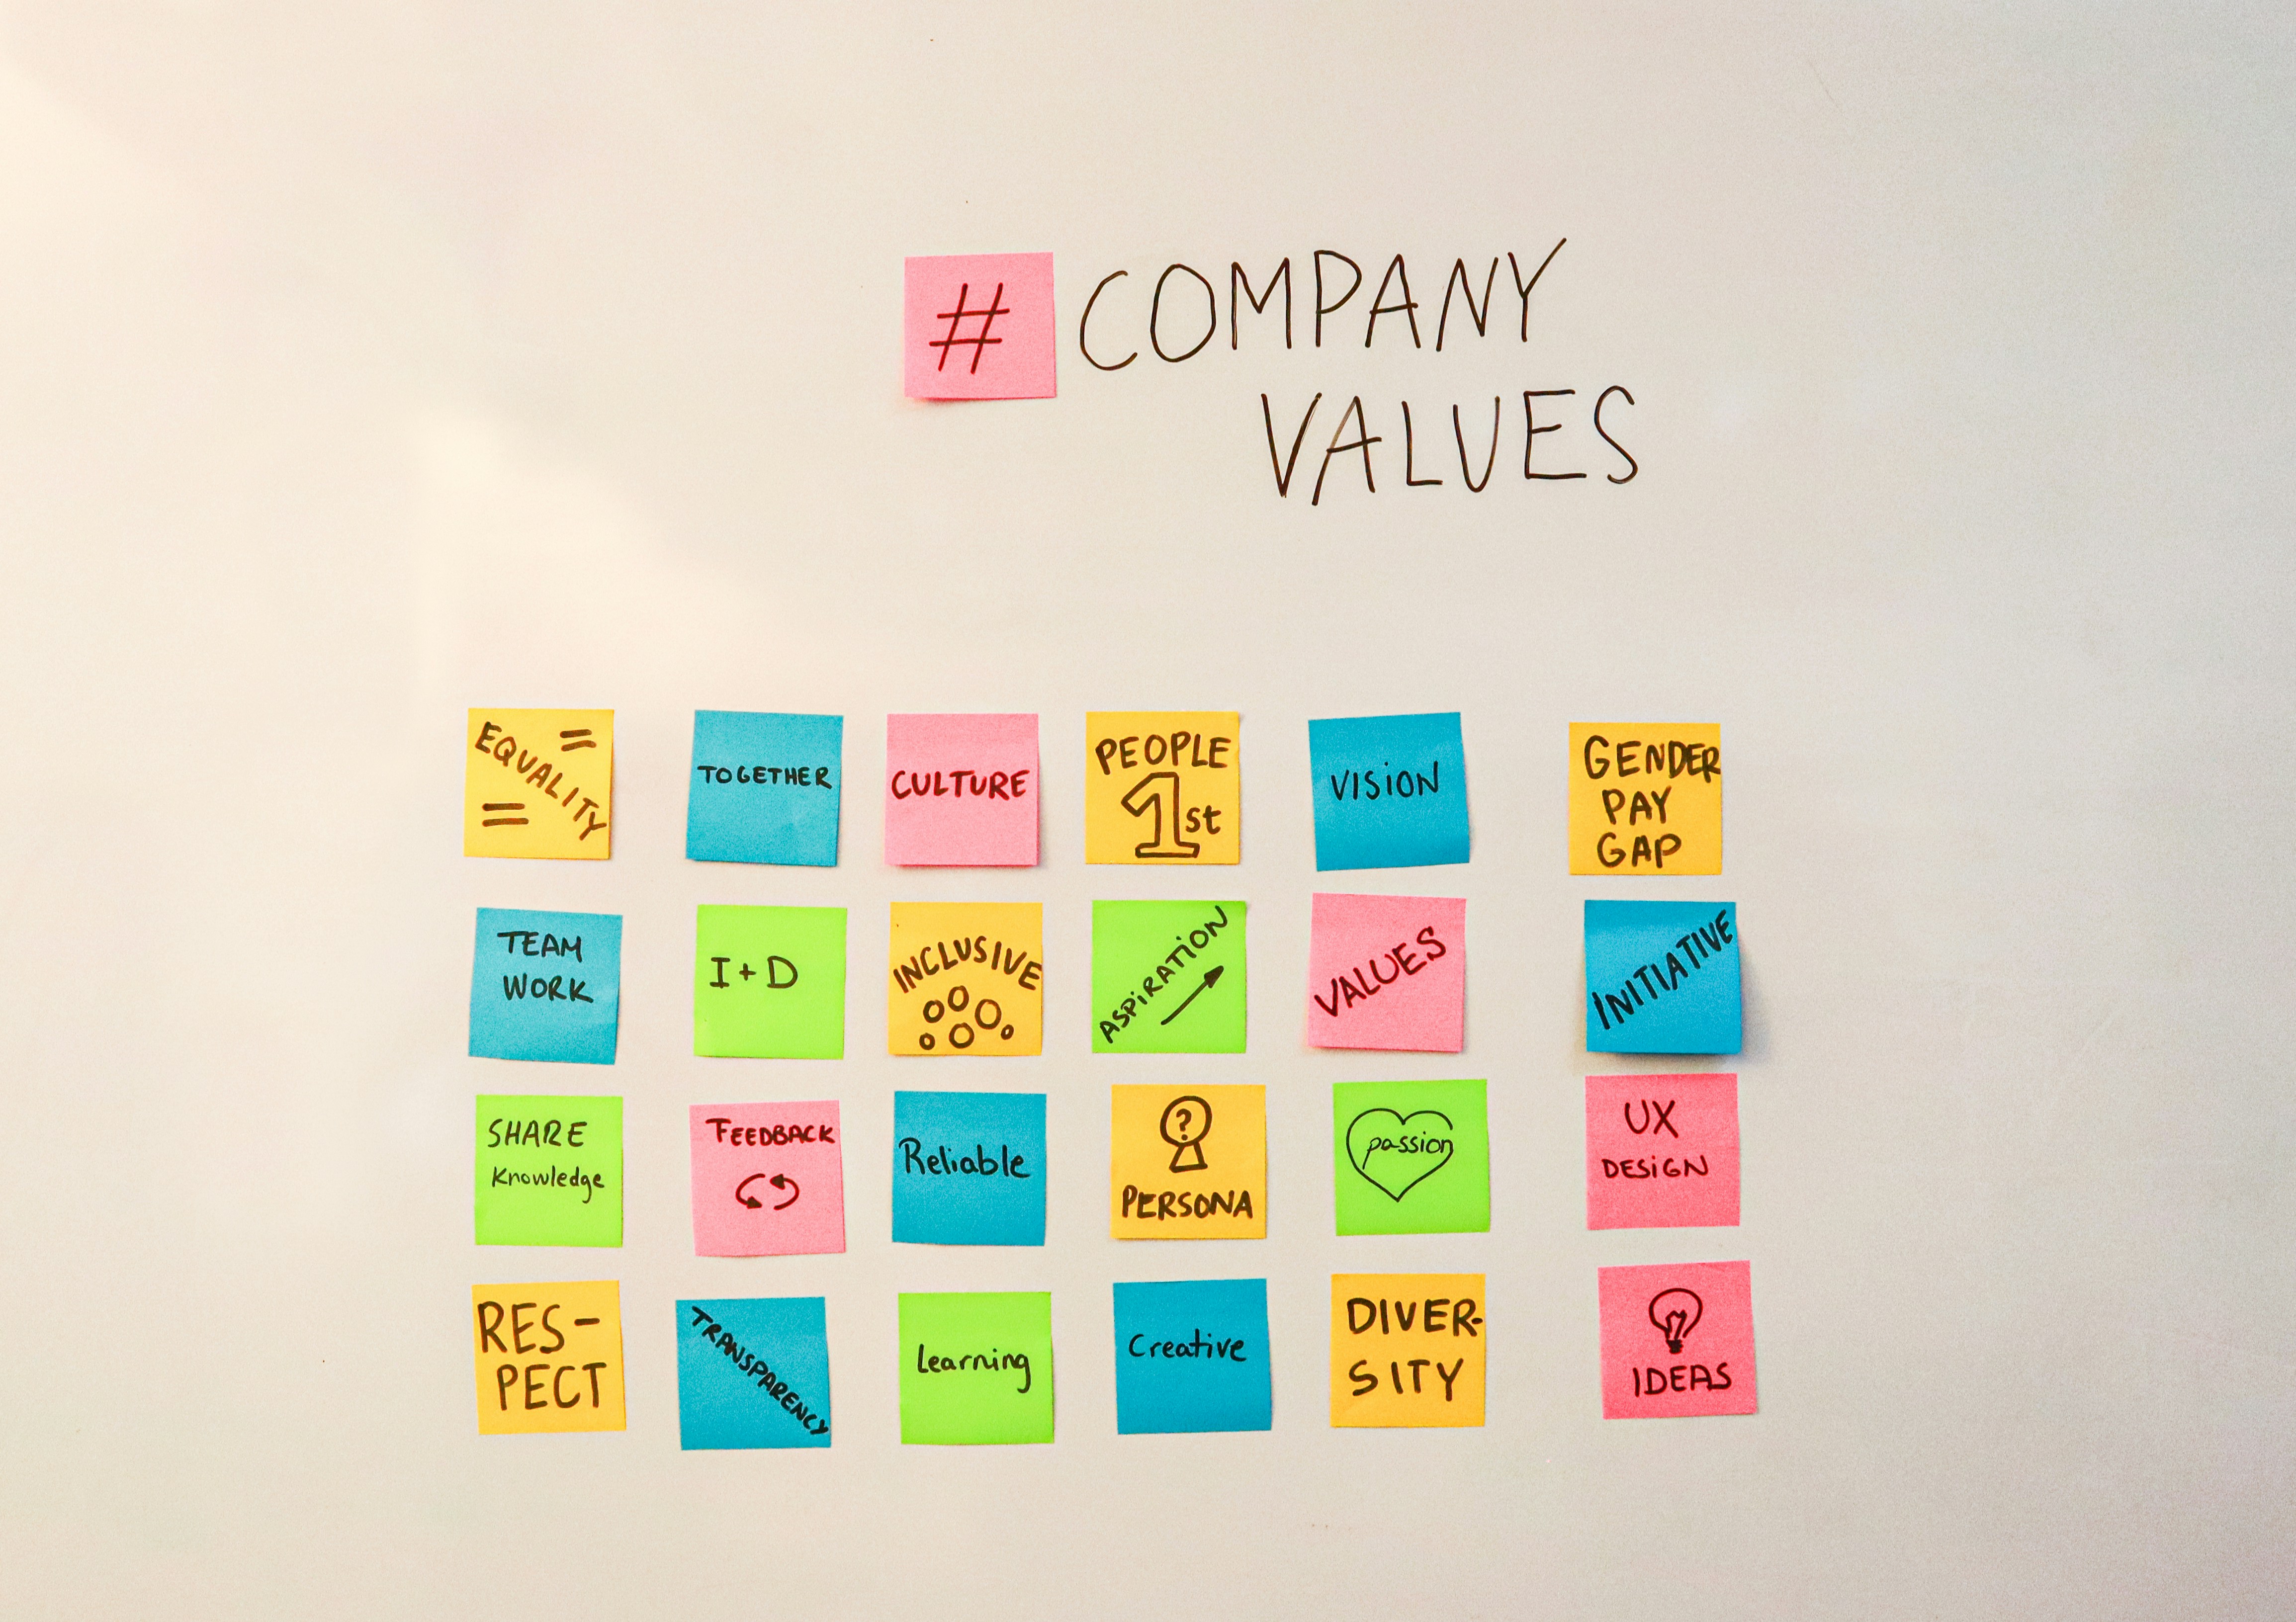 # COMPANY
VALUES
= EQUALITY =
TOGETHER
CULTURE
PEOPLE
1st
VISION
GENDER
PAY
GAP
TEAM
WORK
I+D
INCLUSIVE
ASPIRATION
VALUES
INITIATIVE
SHARE
Knowledge
FEEDBACK
Reliable
?
PERSONA
passion
UX
DESIGN
RES-
PECT
TRANSPARENCY
Learning
Creative
DIVER-
SITY
IDEAS